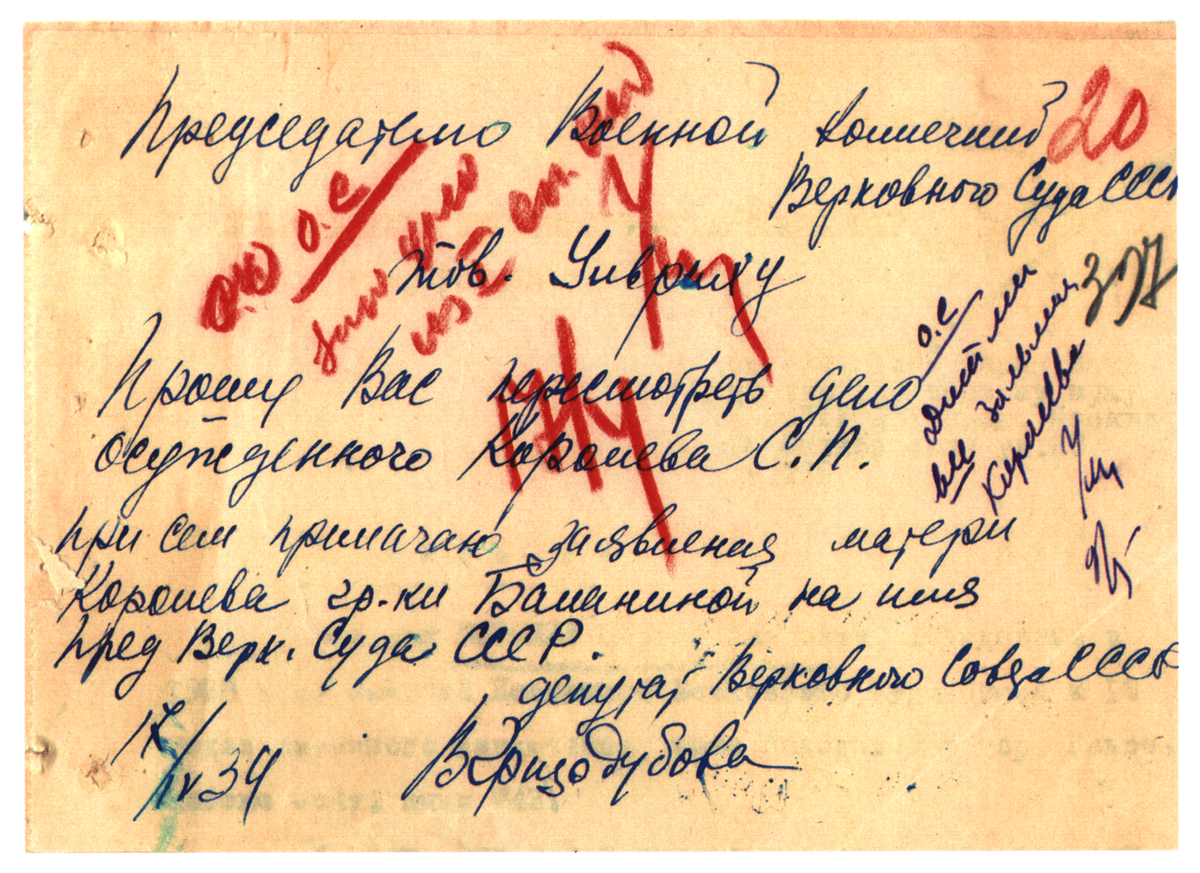 Председателю Военной коллегии 20
Верховного Суда СССР
тов. Ульриху
Прошу Вас пересмотреть дело
осужденного Королева С.П.
При сем прилагаю заявления матери
Королева гр-ки Баланиной на имя
Пред Верх. Суда СССР.
депутат Верховного Совета СССР
17/IV 39 В Гризодубова
О.С.
Дайте мне
все заявления
Королева